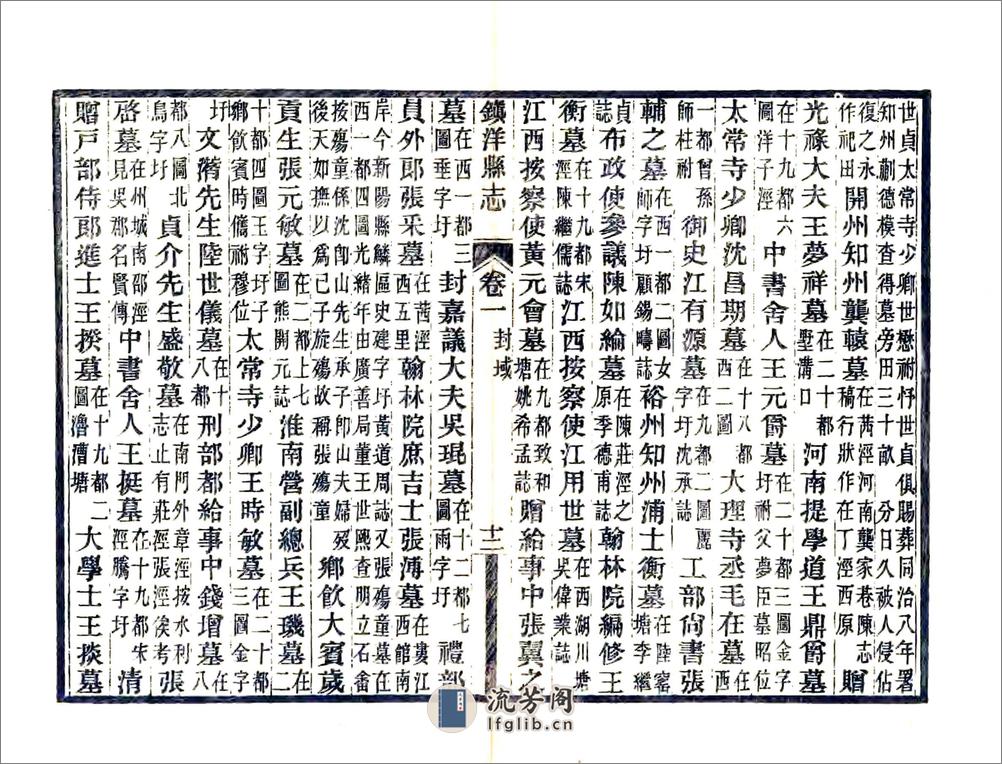 世貞太常寺少卿世懋祔忬世貞俱賜葬同治八年署
知州蒯德模查得墓旁田三十畝分日久被人侵佔
復之永作祀田開州知州龔轅墓在茜涇河南龔家巷陳志作稿行狀作在丁涇西原贈
光祿大夫王夢祥墓在二十都墅溝口河南提學道王鼎爵墓
在十九都六圖洋子涇中書舍人王元爵墓在二十都三圖金字圩祔父夢臣墓昭位
太常寺少卿沈昌期墓在十八都西二圖大理寺丞毛在墓在西
一都曾孫師柱祔御史江有源墓在九都二圖麗字圩沈承誌工部尚書張
輔之墓在西一都二圖女師字圩顧錫疇誌裕州知州浦士衡墓在陸窰塘李繼
貞誌布政使參議陳如綸墓在陳莊涇之原季德甫誌翰林院編修王
衡墓在十九都宋涇陳繼儒誌江西按察使江用世墓在西湖川塘吳偉業誌
江西按察使黃元會墓在九都致和塘姚希孟誌贈給事中張翼之
鎮洋縣志 卷一 封域 十二
墓在西一都三圖垂字圩封嘉議大夫吳琨墓在十二都七圖雨字圩禮部
員外郎張采墓在茜涇西五里翰林院庶吉士張溥墓在婁江西館南
岸今新陽縣鱗區史建字圩黃道周誌又張殤童墓在
西一都四圖光緒年由廣善局董王世熙查明立石畬
按殤童係沈卽山先生承子卽山夫婦歿後天如撫以爲己子旋殤故稱張殤童鄉飲大賓歲
貢生張元敏墓在二都上七圖熊開元誌淮南營副總兵王璣墓在二
十都四圖王字圩子鄉飲賓時儋祔穆位太常寺少卿王時敏墓在二十都三圖金字
圩文潛先生陸世儀墓在十八都刑部都給事中錢增墓在八
都八圖北鳥字圩貞介先生盛敬墓在南門外章涇按水利志止有莊涇張涇俟考張
啓墓在州城南邵涇見吳郡名賢傳中書舍人王挺墓在十九都宋涇騰字圩清
贈戶部侍郎進士王揆墓在十九都二圖澛漕塘大學士王掞墓
流芳阁
lfglib.cn